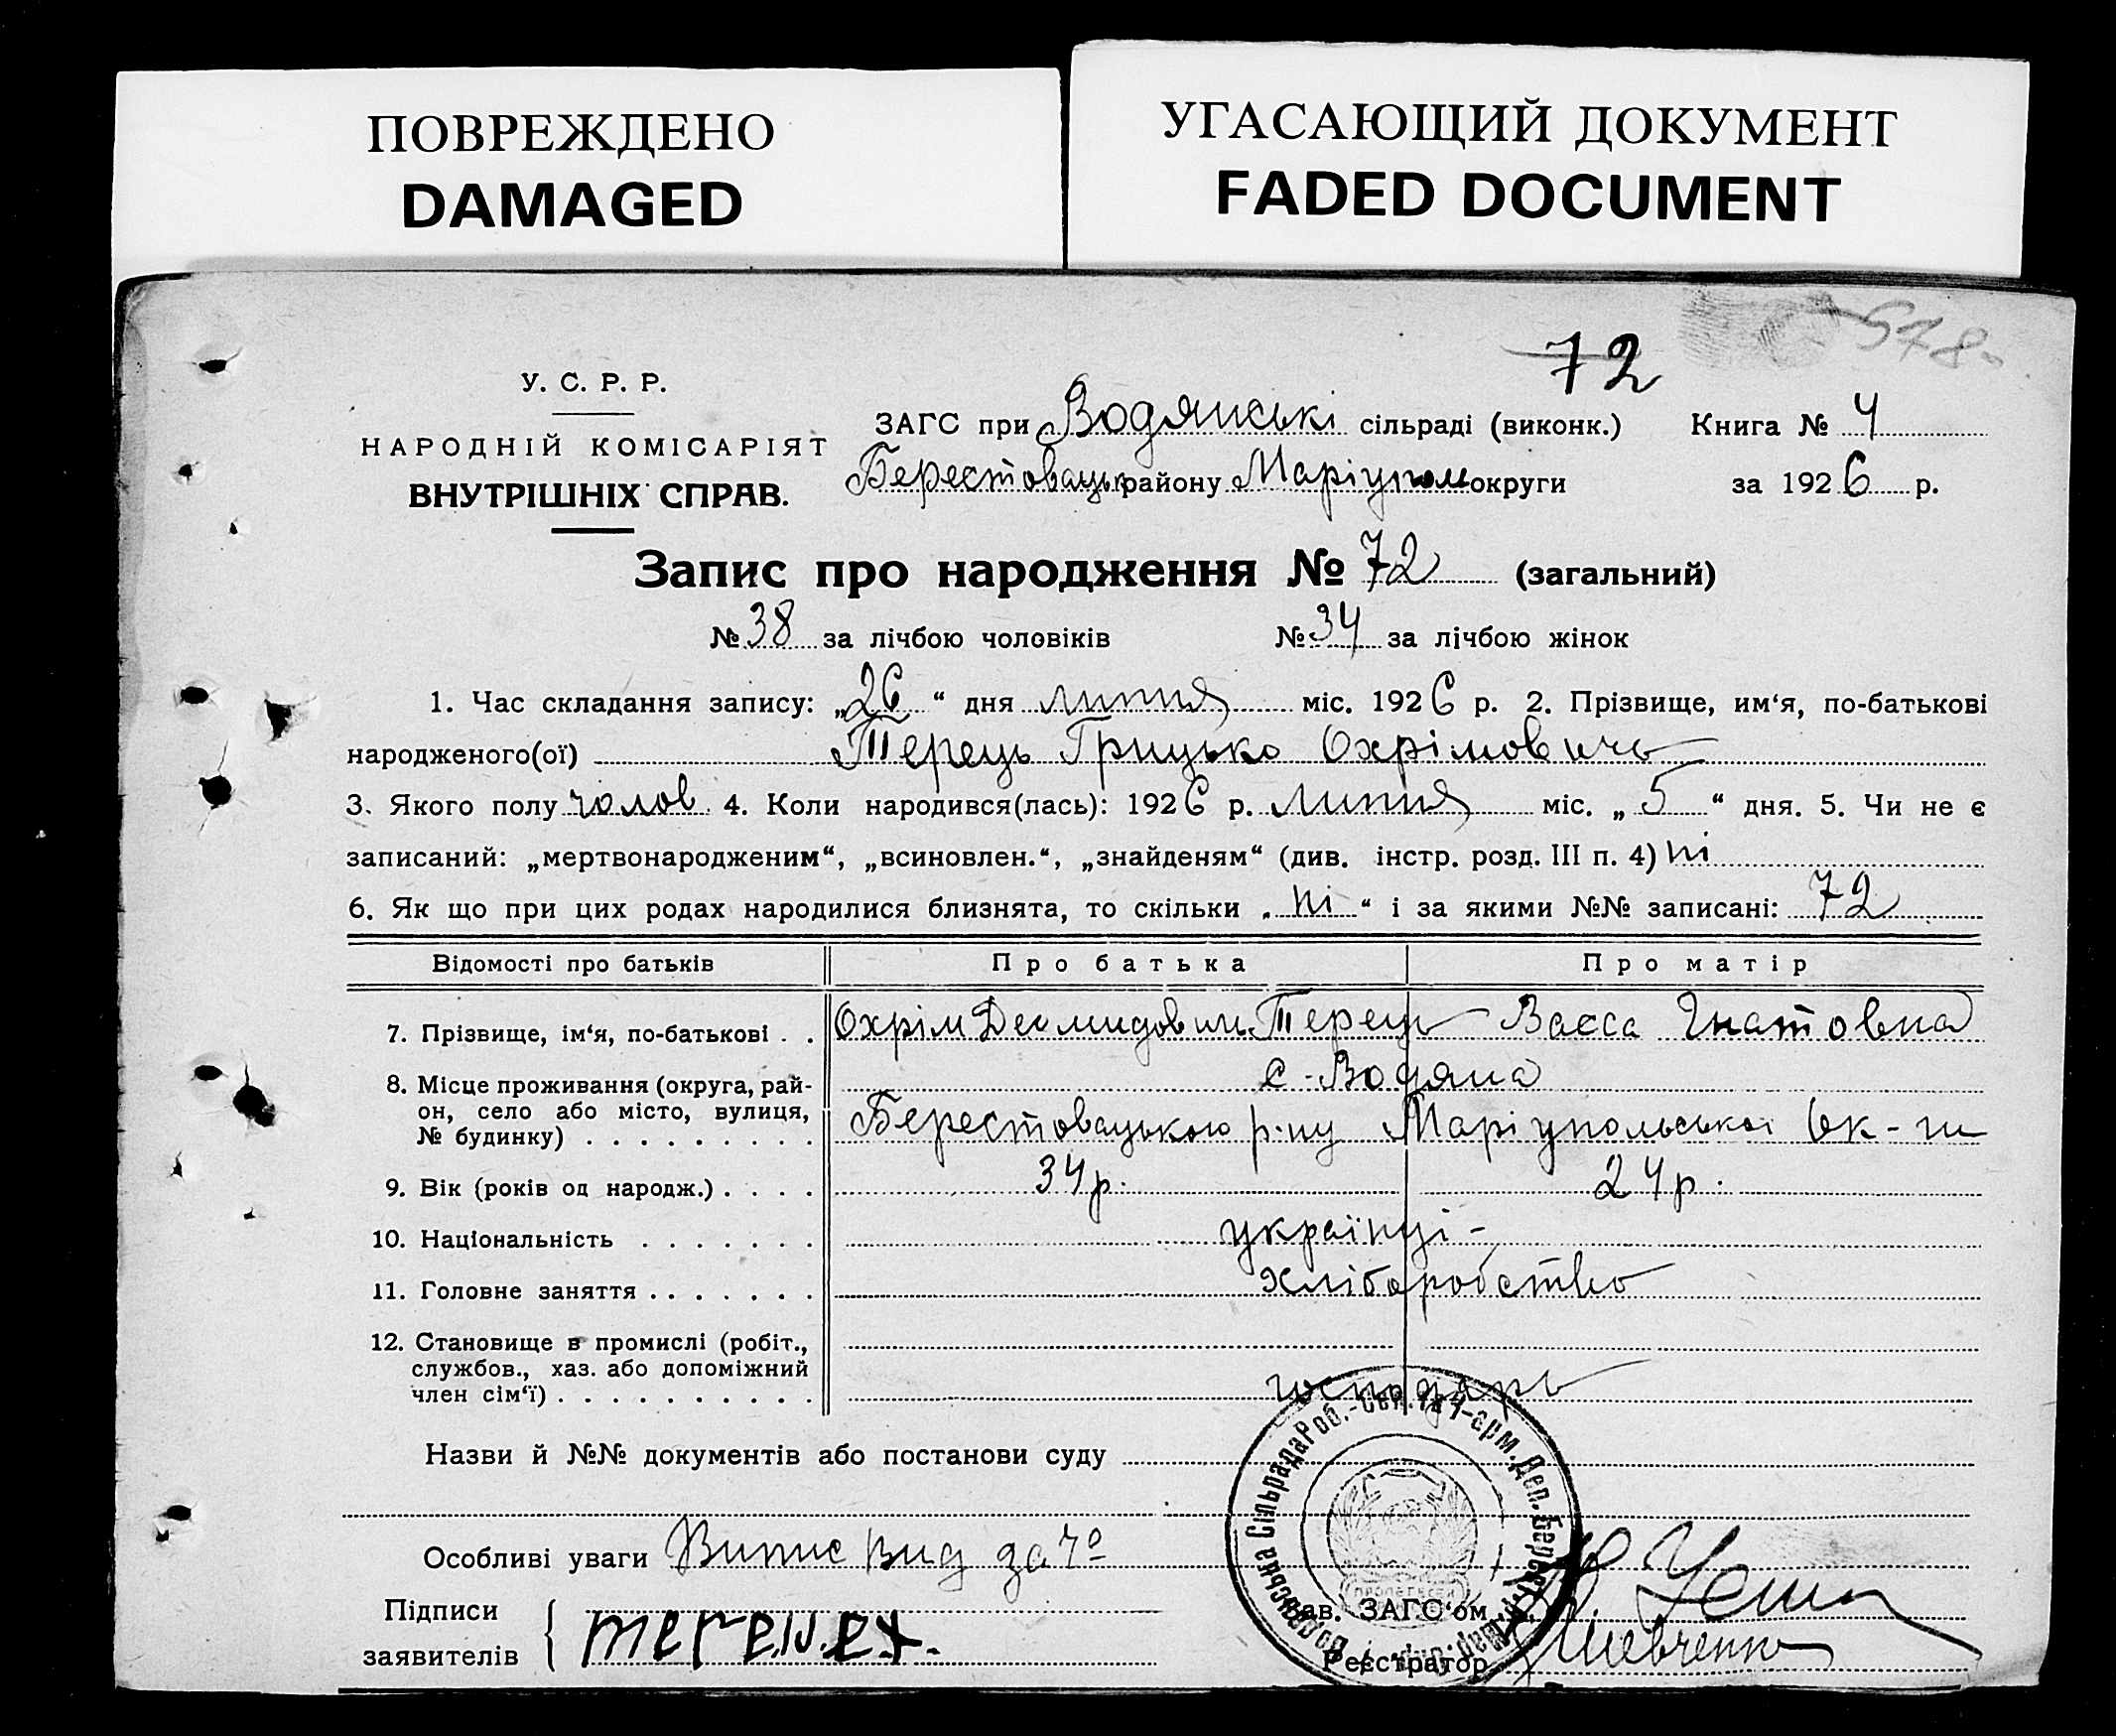 ПОВРЕЖДЕНО
DAMAGED
УГАСАЮЩИЙ ДОКУМЕНТ
FADED DOCUMENT
578
72
У. С. Р. Р.
НАРОДНІЙ КОМІСАРІЯТ
ВНУТРІШНІХ СПРАВ.
ЗАГС при Водянські сільраді (виконк.) Книга № 4
Берестовацьк району Маріупом округи за 1926 р.
Запис про народження № 72 (загальний)
№ 38 за лічбою чоловіків № 34 за лічбою жінок
1. Час складання запису: „26“ дня липня міс. 1926 р. 2. Прізвище, им‘я, по-батькові
народженого(ої) Терець Грицько Охрімовичь
3. Якого полу чолов. 4. Коли народився(лась): 1926 р. липня міс. „5“ дня. 5. Чи не є
записаний: „мертвонародженим“, „всиновлен.“, „знайденям“ (див. інстр. розд. III п. 4) ні
6. Як що при цих родах народилися близнята, то скільки „ні“ і за якими №№ записані: 72
Відомості про батьків Про батька Про матір
7. Прізвище, ім‘я, по-батькові . . Охрім Терець Васса Гнатовна
8. Місце проживання (округа, рай- с-Водяна
он, село або місто, вулиця,
№ будинку) . . . . . . . . . . Берестовацького р-ну Маріупольської Ок-ги
9. Вік (років од народж.) . . . . 34 р. 24 р.
10. Національність . . . . . . . українці -
11. Головне заняття . . . . . . . хліборобство
12. Становище в промислі (робіт.,
службов., хаз. або допоміжний
член сім‘ї) . . . . . . . . . . господарь
Назви й №№ документів або постанови суду
Особливі уваги Випис вид
Підписи
заявителів
Зав. ЗАГС‘ом
Реєстратор Шевченко
Водянська Сільрада Роб.-Сел. та Ч-арм. Деп.